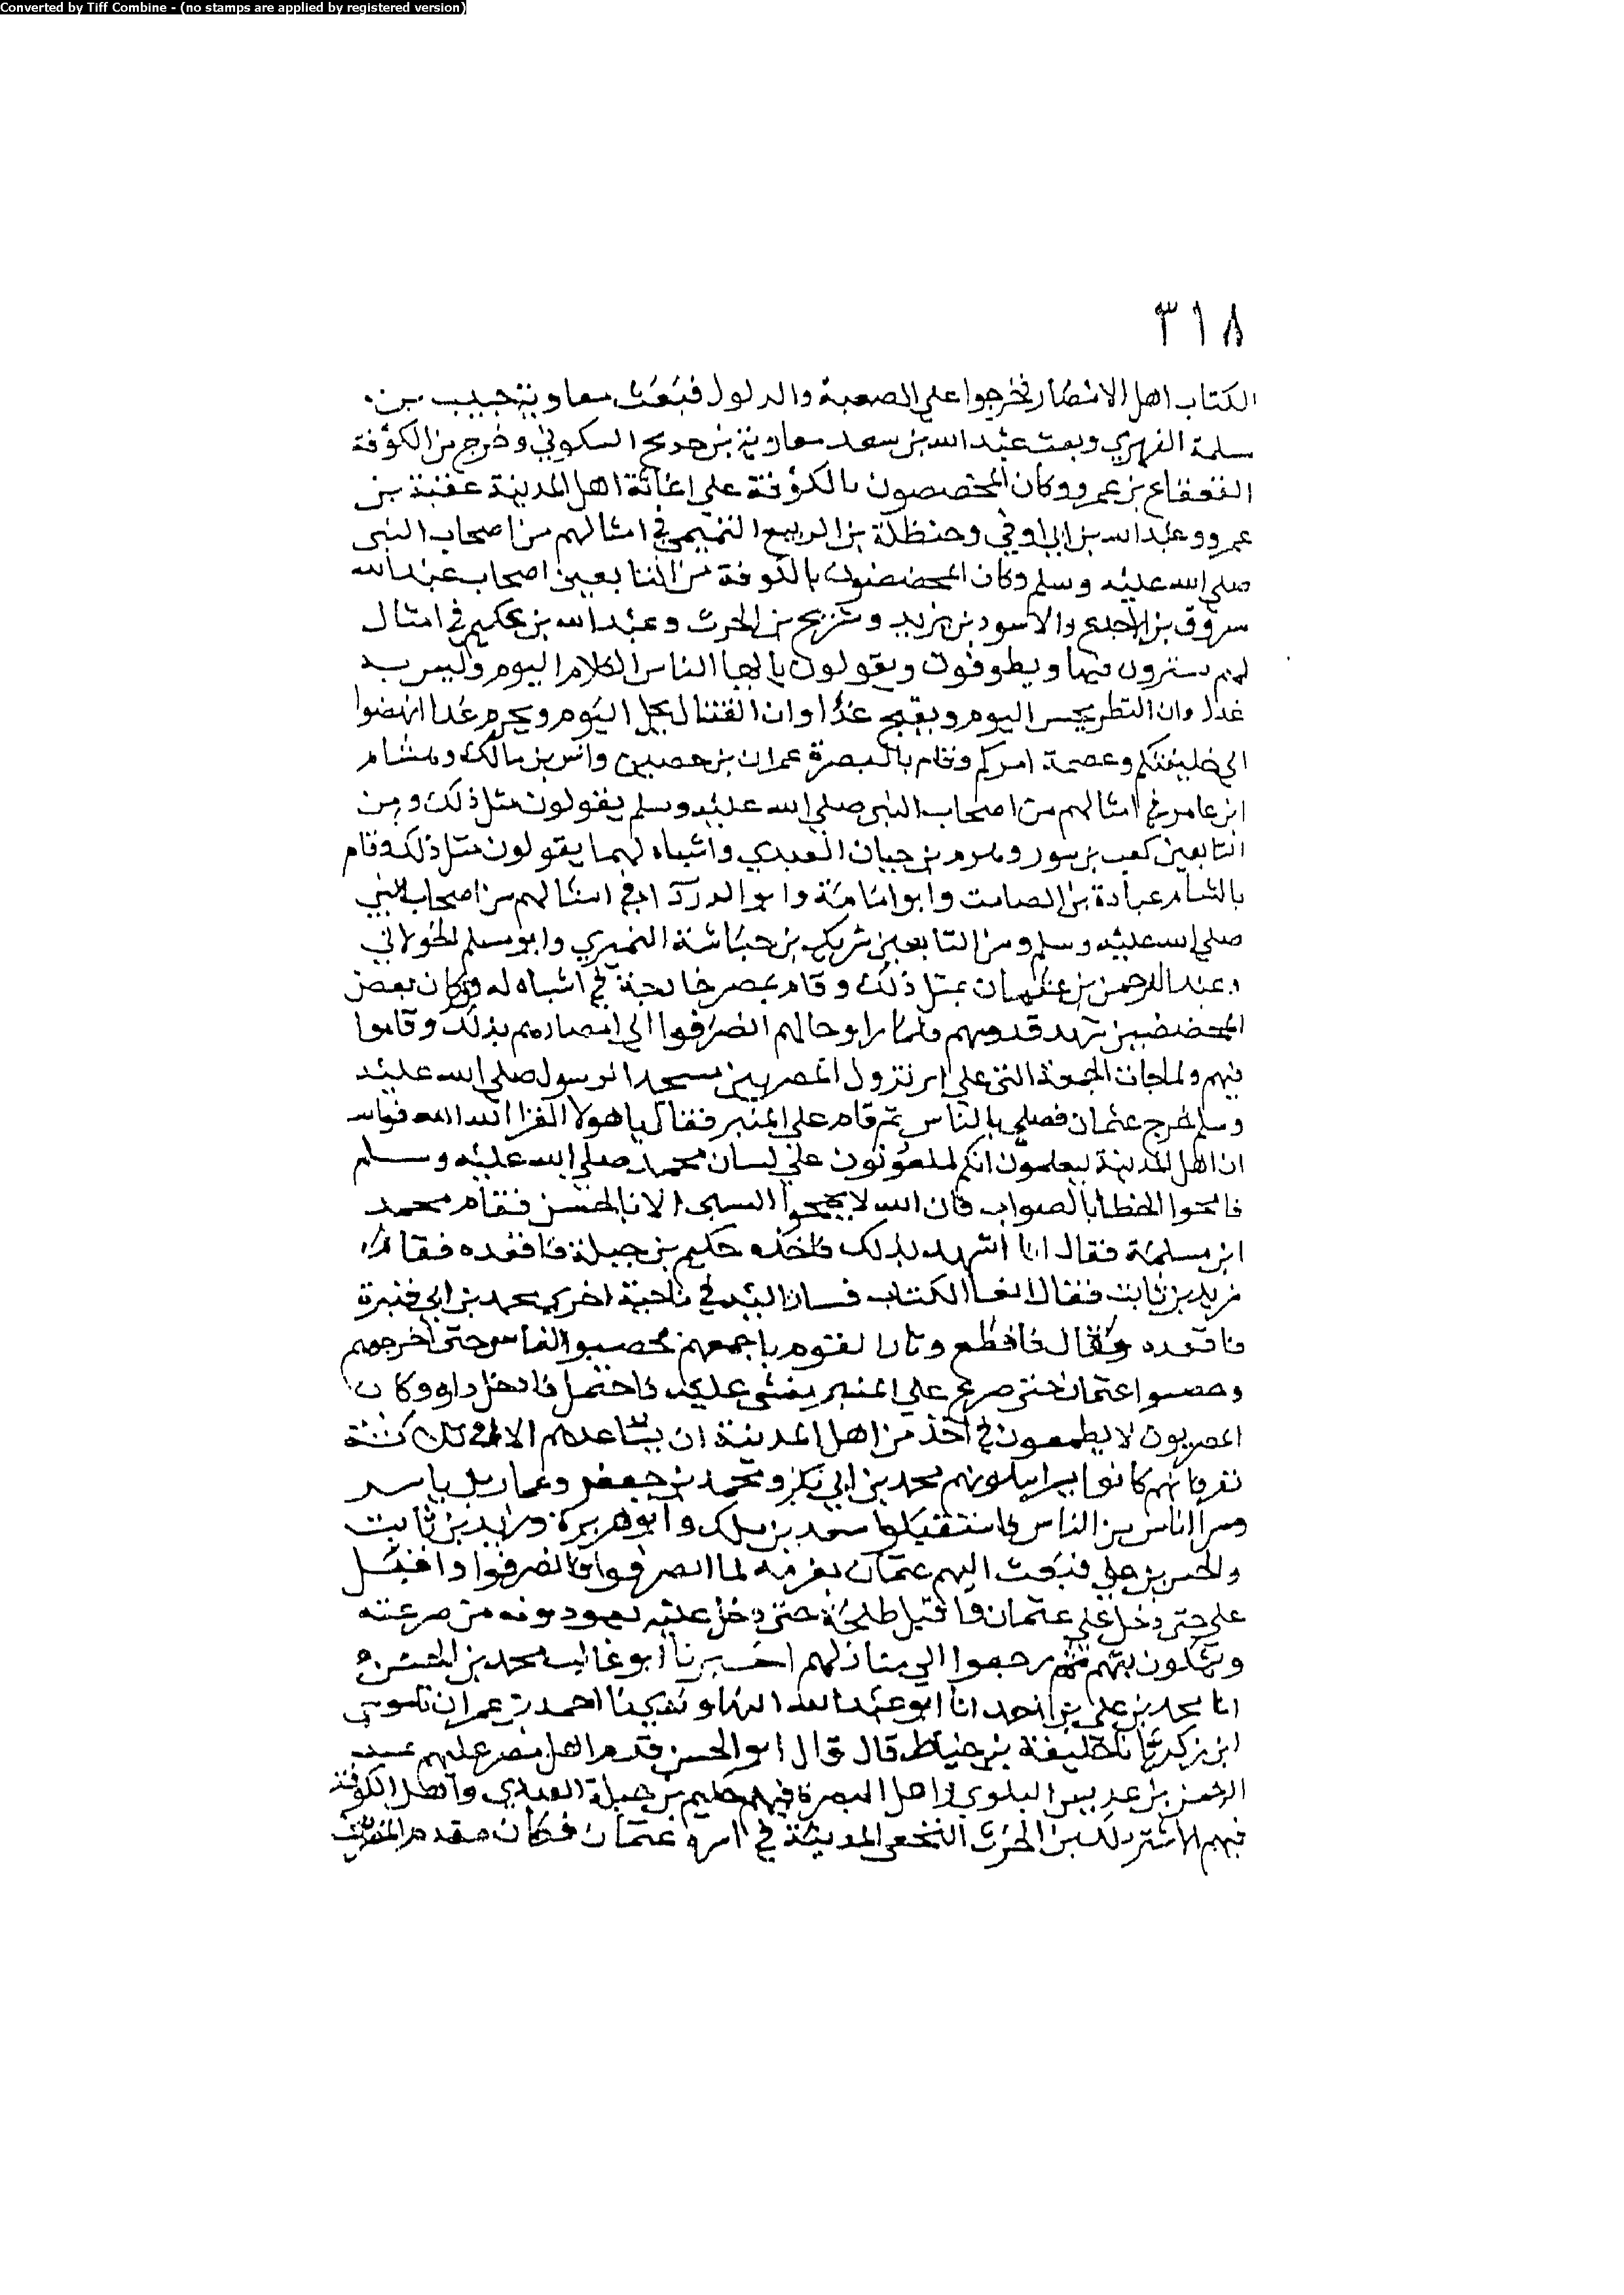 Converted by Tiff Combine - (no stamps are applied by registered version)
٣١٨
الكتاب اهل الامصار فخرجوا على الصعبة والدلول فبعث معاوية حبيب بن
سلمة الفهري وبعث عبد الله بن سعد معاوية بن حديج السكوني وخرج من الكوفة
القعقاع بن عمرو وكان المخصصون بالكوفة على اغاثة اهل المدينة عقبة بن
عمرو وعبد الله بن ابي اوفي وحنظلة بن الربيع التميمي في امثالهم من اصحاب النبي
صلى الله عليه وسلم وكان المحضضون بالكوفة من التابعين اصحاب عبد الله
سروق بن الاجدع والاسود بن يزيد وشريح بن الحرث وعبد الله بن عكيم في امثال
لهم يسيرون فيها ويطوفون ويقولون يا ايها الناس الكلام اليوم وليس به
غدا وان النظر يحسن اليوم ويقبح غدا وان القتال يحل اليوم ويحرم غدا انهضوا
الى خليفتكم وعصمة امركم وقام بالبصرة عمران بن حصين وانس بن مالك وهشام
ابن عامر في امثالهم من اصحاب النبي صلى الله عليه وسلم يقولون مثل ذلك ومن
التابعين كعب بن سور وهرم بن حيان العبدي واشباه لهما يقولون مثل ذلك وقام
بالشام عبادة بن الصامت وابو امامة وابو الدرداء في امثالهم من اصحاب النبي
صلى الله عليه وسلم ومن التابعين شريك بن حباشة النميري وابو مسلم الخولاني
وعبد الرحمن بن عثمان بمثل ذلك وقام بمصر خارجة في اشباه له وكان بعض
المحضضين شهد قدومهم فلما راو حالهم انصرفوا الى امصارهم بذلك وقاموا
فيهم ولما جات الجمعة التي على اثر نزول المصريين مسجد الرسول صلى الله عليه
وسلم خرج عثمان فصلى بالناس ثم قام على المنبر فقال يا هولا الغزا الله الله فوالله
ان اهل المدينة ليعلمون انكم لملعونون على لسان محمد صلى الله عليه وسلم
فامحوا الخطا بالصواب فان الله لا يمحوا السيى الا بالحسن فقام محمد
ابن مسلمة فقال انا اشهد بذلك فاخذه حكيم بن جبلة فاقعده فقام
زيد بن ثابت فقال ابغنا الكتاب فسار اليه في ناحية اخرى محمد بن ابي قتيرة
فاقعده وقال فافظع وثار القوم باجمعهم فحصبوا الناس حتى اخرجوهم
وحصبوا عثمان حتى صرع على المنبر يغشى عليه فاحتمل فادخل داره وكان
المصريون لا يطمعون في احد من اهل المدينة ان يساعدهم الا في ثلثة
نفر فانهم كانوا يراسلونهم محمد بن ابي بكر ومحمد بن جعفر وعمار بن ياسر
وسرا اناس من الناس فاستقتلوا سعد بن ملك وابو هريرة وزيد بن ثابت
والحسن بن علي فبعث اليهم عثمان بعزمه لما انصرفوا فانصرفوا واقبل
علي حتى دخل على عثمان واقبل طلحة حتى دخل عليه يعودونه من صرعته
ويشكون بثهم ثم رجعوا الى منازلهم اخبرنا ابو غالب محمد بن الحسن
انا محمد بن علي بن احمد انا ابو عبد الله النهاوندي نا احمد بن عمران نا موسى
ابن زكريا نا خليفة بن خياط قال قال ابو الحسن قدم اهل مصر عليهم عبد
الرحمن بن عديس البلوي واهل البصرة فيهم حكيم بن جبلة العبدي واهل الكوفة
فيهم الاشتر ملك بن الحرث النخعي المدينة في امر عثمان فكان مقدم المصريين